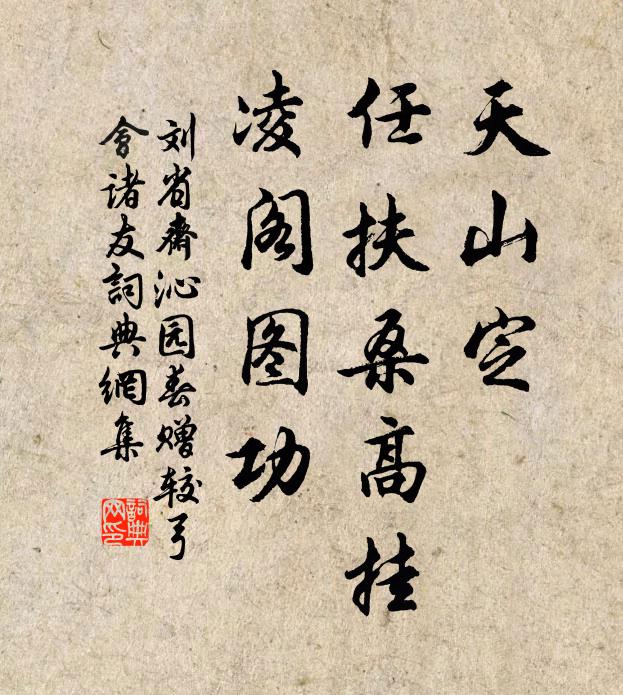 天山定
任扶桑高挂
凌阁图功
刘省斋沁园春赠较弓
会诸友詞典網集
詞典网印